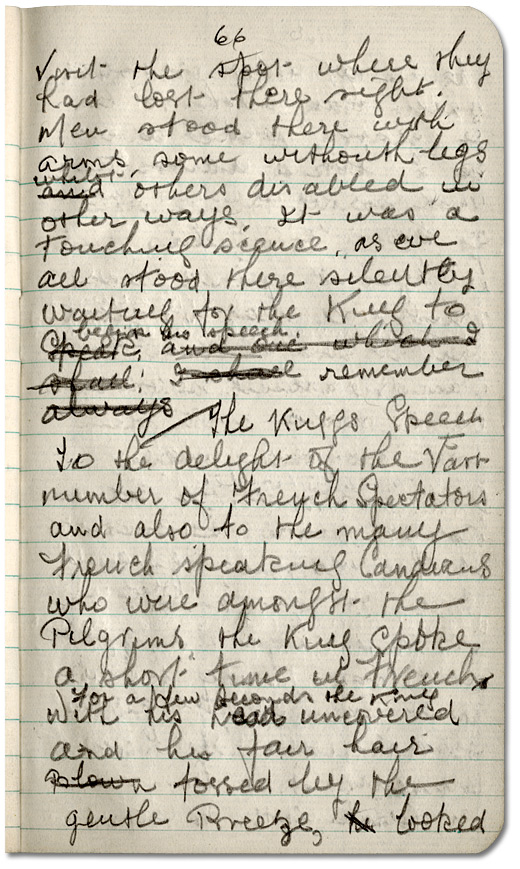 66
Visit the spot where they
had lost there sight.
Men stood there with
arms, some withouth legs
whilst
and others disabled in
other ways. It was a
Touching scence, as we
all stood there silently
waiting for the King to
begin his speech.
Speak, and one which I
shall. I shall remember
always The Kings Speech
To the delight of the Vast
number of French Spectators
and also to the many
French speaking Canadians
who were amongst the
Pilgrims the King spoke
a short time in French.
For a few seconds the King
With his head uncovered
and his fair hair
blown tossed by the
gentle Breeze, he looked